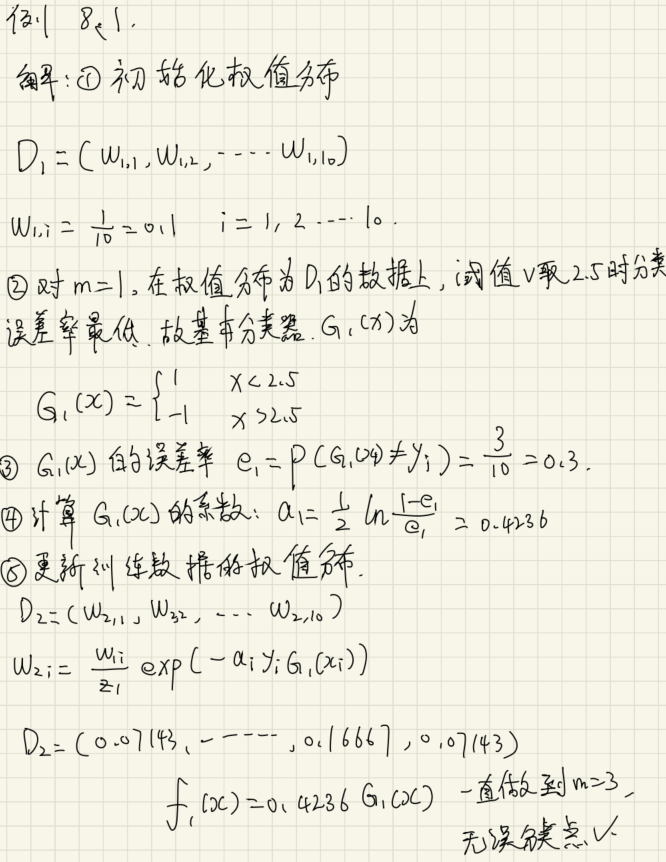 例 8.1.
解:① 初始化权值分布
D₁ = (W₁,₁, W₁,₂, ---- W₁,₁₀)
W₁,ᵢ = 1/10 = 0.1 i = 1, 2 ---- 10.
② 对 m=1, 在权值分布为 D₁ 的数据上, 阈值 v 取 2.5 时分类
误差率最低. 故基本分类器. G₁(x) 为
G₁(x) = { 1 x < 2.5
-1 x > 2.5
③ G₁(x) 的误差率 e₁ = P(G₁(xᵢ) ≠ yᵢ) = 3/10 = 0.3.
④ 计算 G₁(x) 的系数: α₁ = 1/2 ln (1-e₁)/e₁ = 0.4236
⑤ 更新训练数据的权值分布.
D₂ = (W₂,₁, W₃₂, --- W₂,₁₀)
W₂ᵢ = W₁ᵢ/Z₁ exp(-αᵢ yᵢ G₁(xᵢ))
D₂ = (0.07143, -----, 0.16667, 0.07143)
f₁(x) = 0.4236 G₁(x) 一直做到 m=3,
无误分类点 ✓.